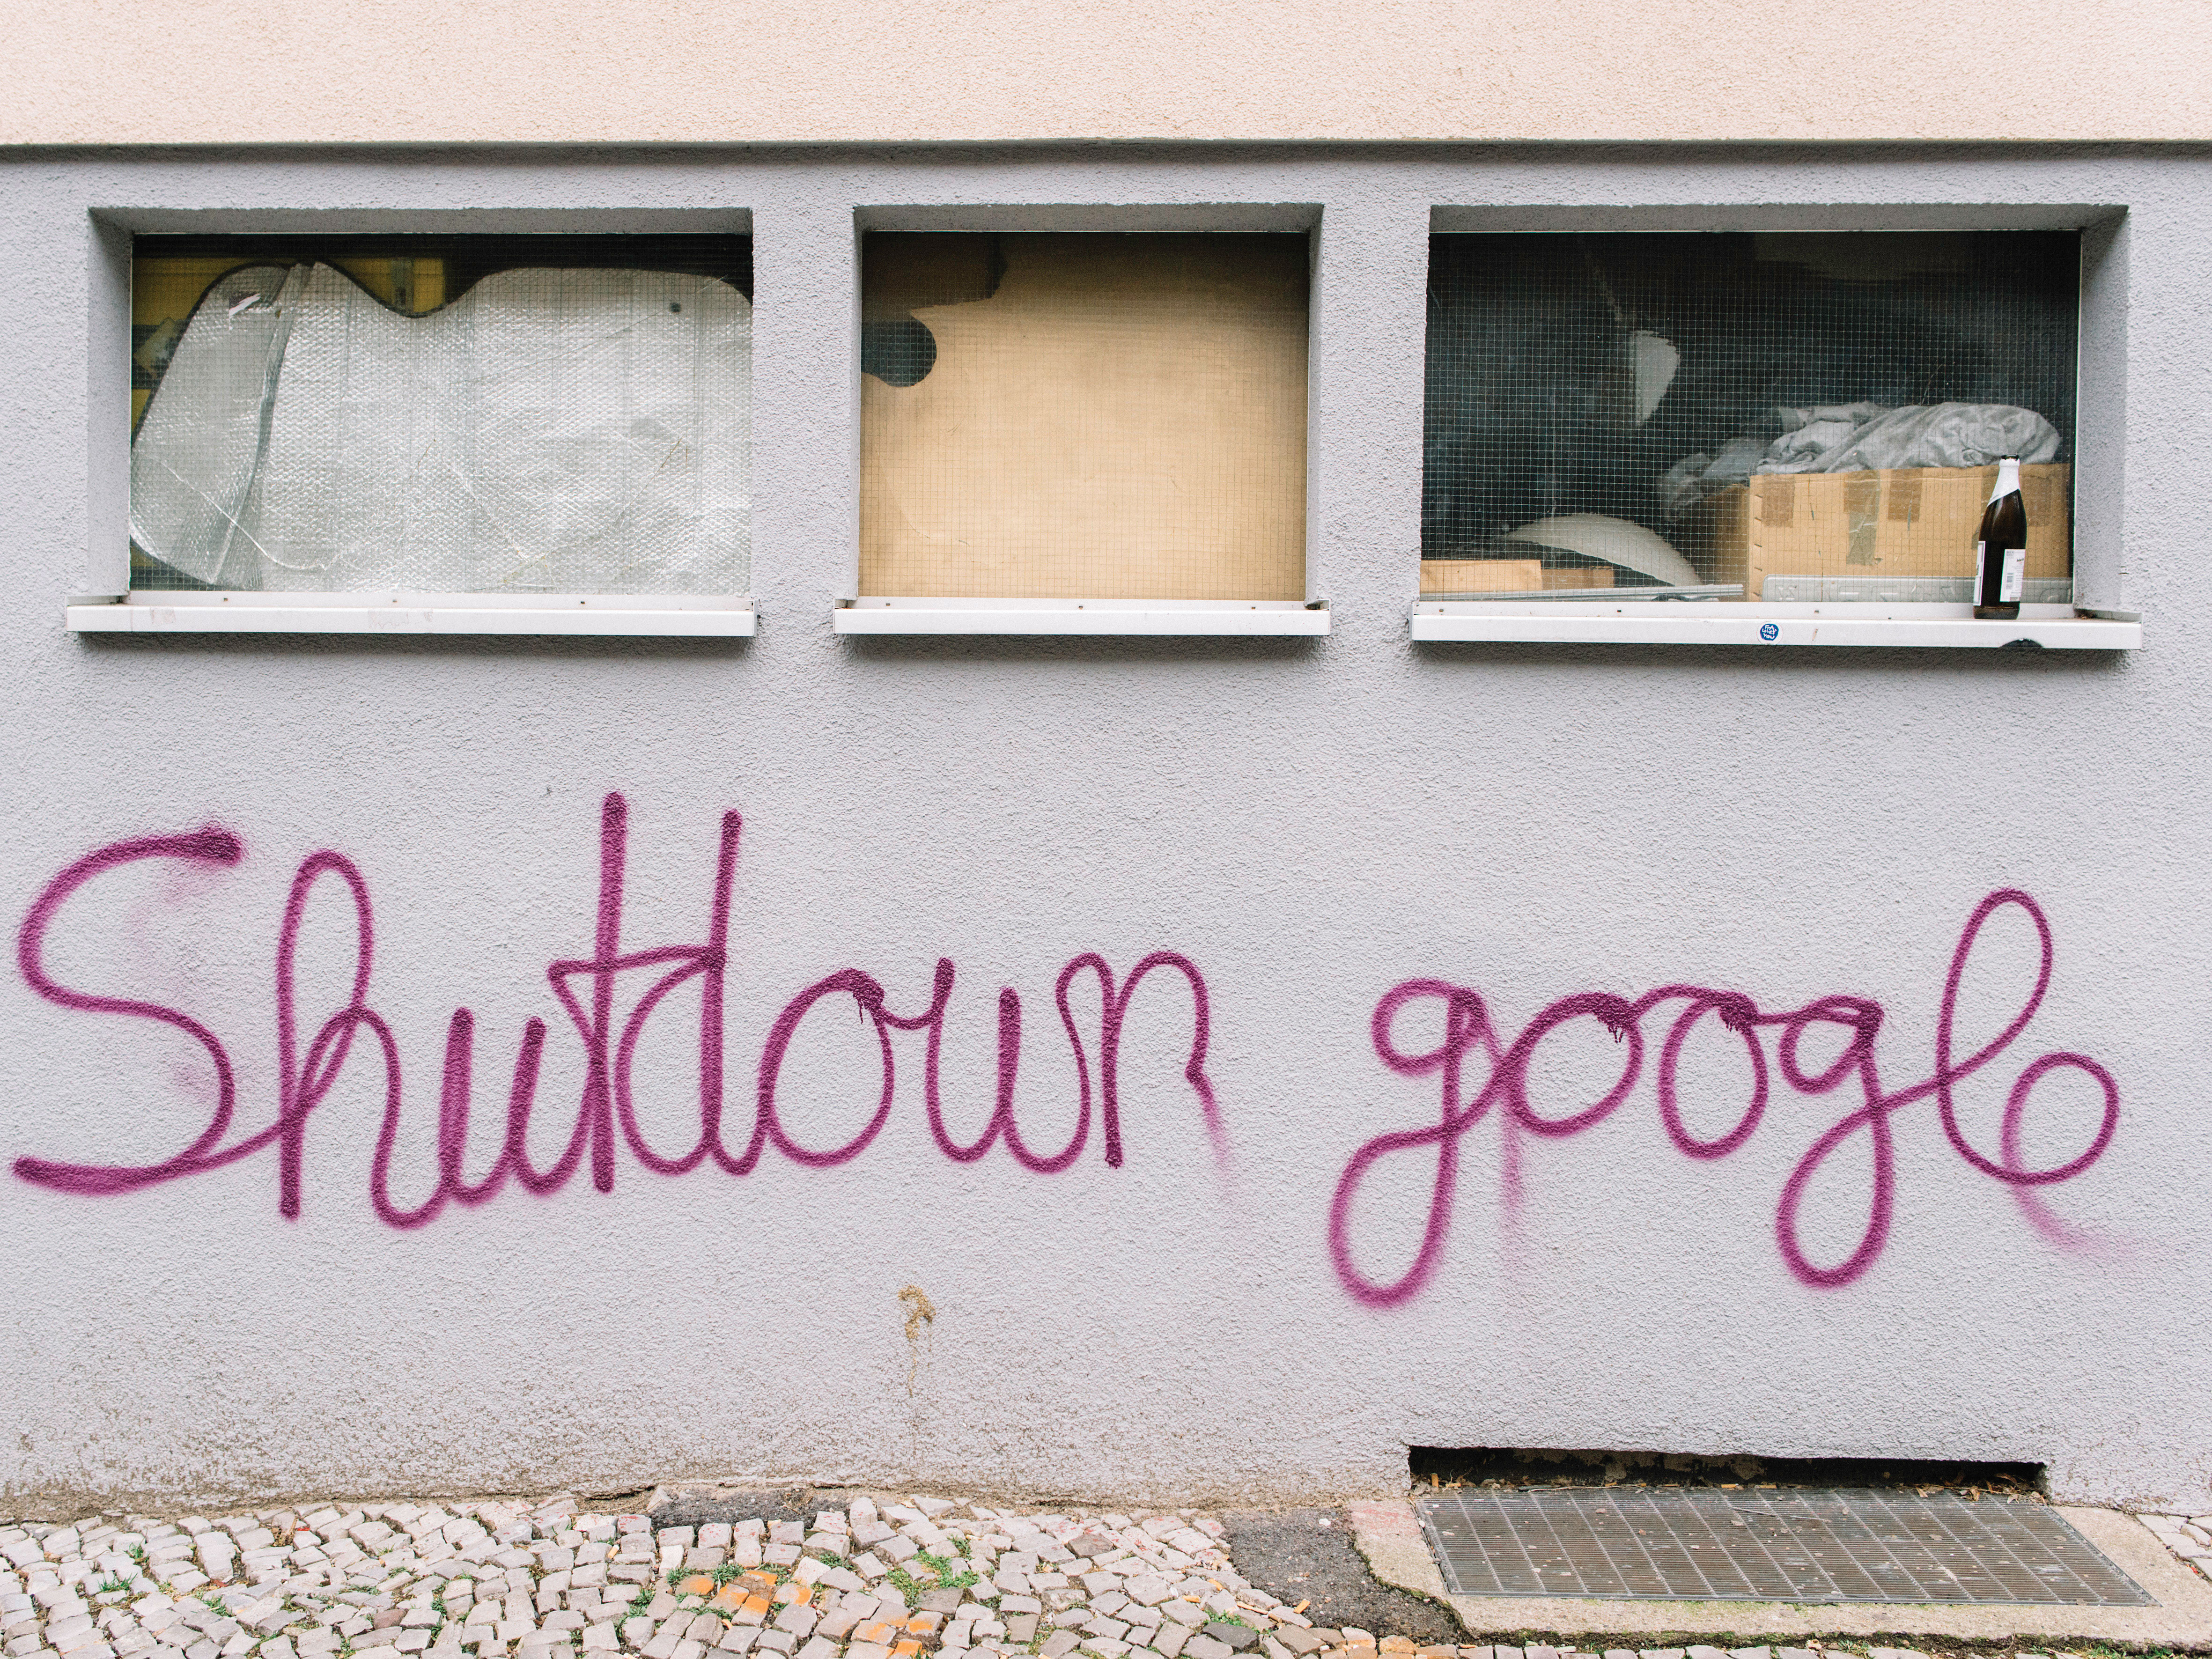 Shutdown google